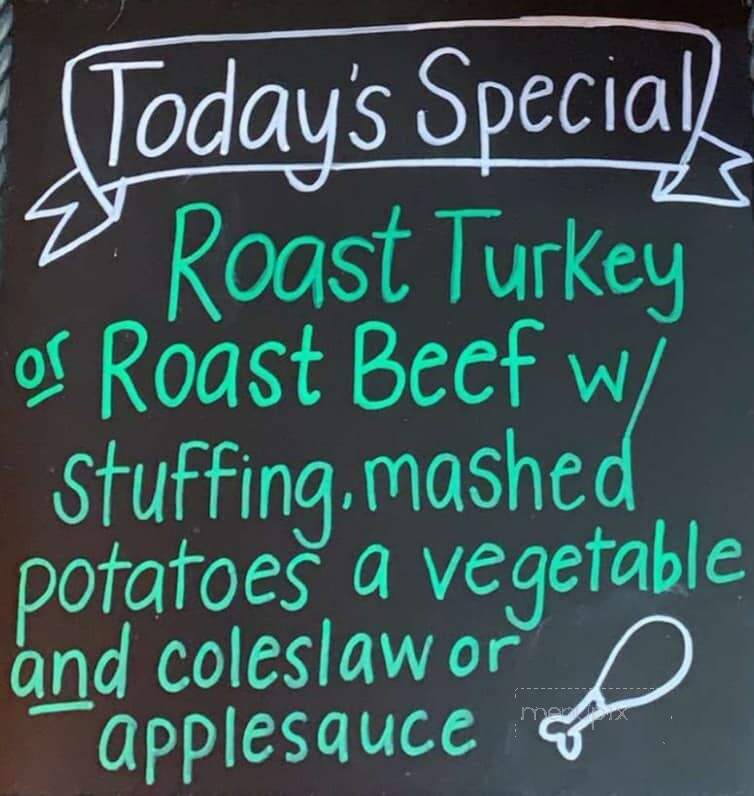 Today's Special
Roast Turkey
or Roast Beef w/
stuffing, mashed
potatoes a vegetable
and coleslaw or
applesauce
menupix